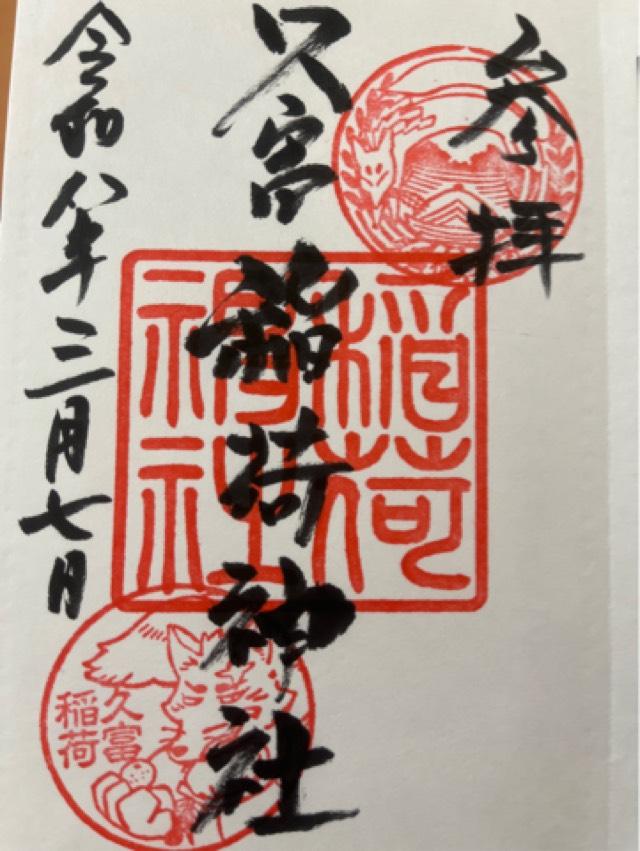 参拝
久富稲荷神社
稲荷
神社
令和八年三月七日
久富
稲荷